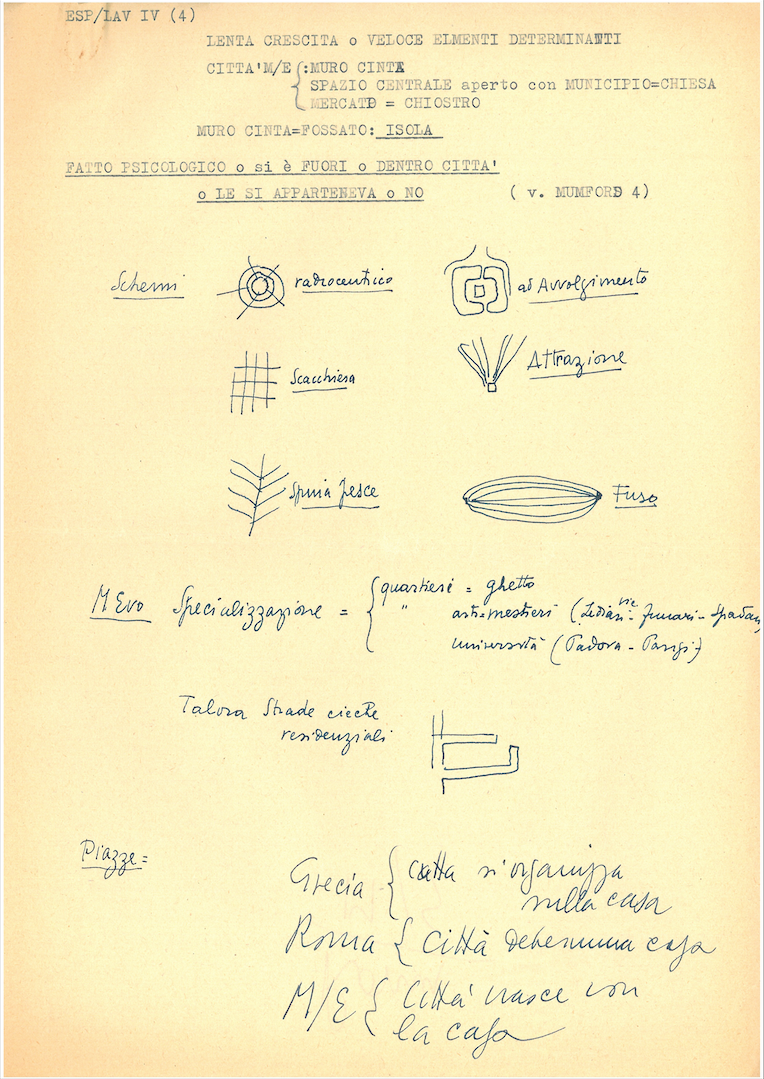 ESP/LAV IV (4)
LENTA CRESCITA o VELOCE ELMENTI DETERMINANTI
CITTA'M/E :MURO CINTA
SPAZIO CENTRALE aperto con MUNICIPIO=CHIESA
MERCATO = CHIOSTRO
MURO CINTA=FOSSATO: ISOLA
FATTO PSICOLOGICO o si è FUORI o DENTRO CITTA'
o LE SI APPARTENEVA o NO ( v. MUMFORD 4)
Schemi radiocentrico ad Avvolgimento
Scacchiera Attrazione
Spina Pesce Fuso
M Evo Specializzazione = quartieri = ghetto
" arti=mestieri ( vie - funari - Spadari
università (Padova - Parigi)
Talora Strade cieche
residenziali
Piazze =
Grecia città si organizza
sulla casa
Roma città determina casa
M/E città nasce con
la casa